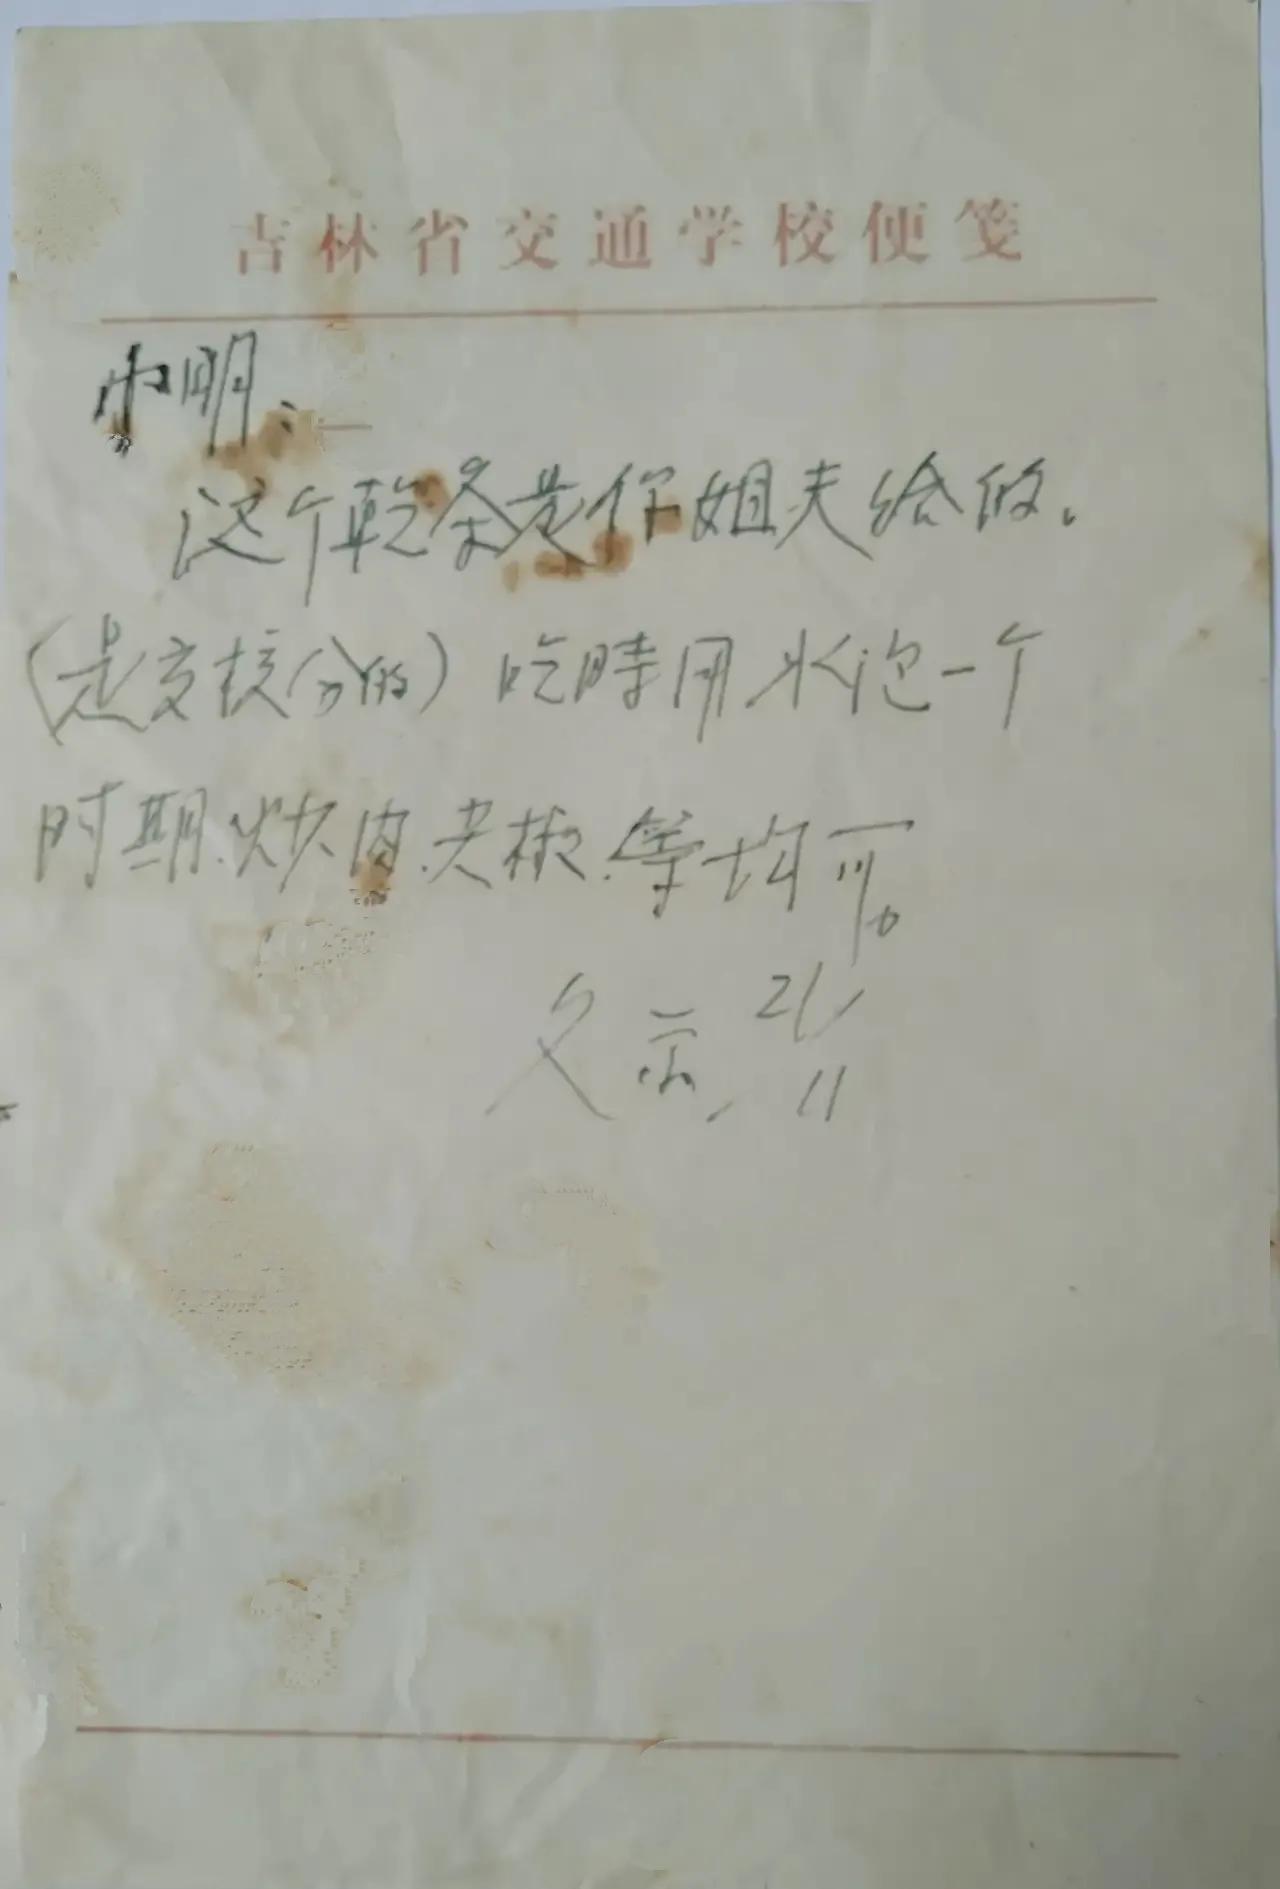 吉林省交通学校便笺
小明：
这个乾条是你姐夫给的.
（是交校分的）吃時用水泡一个
时期.炒肉.尖椒.等均可。
父示 21/11